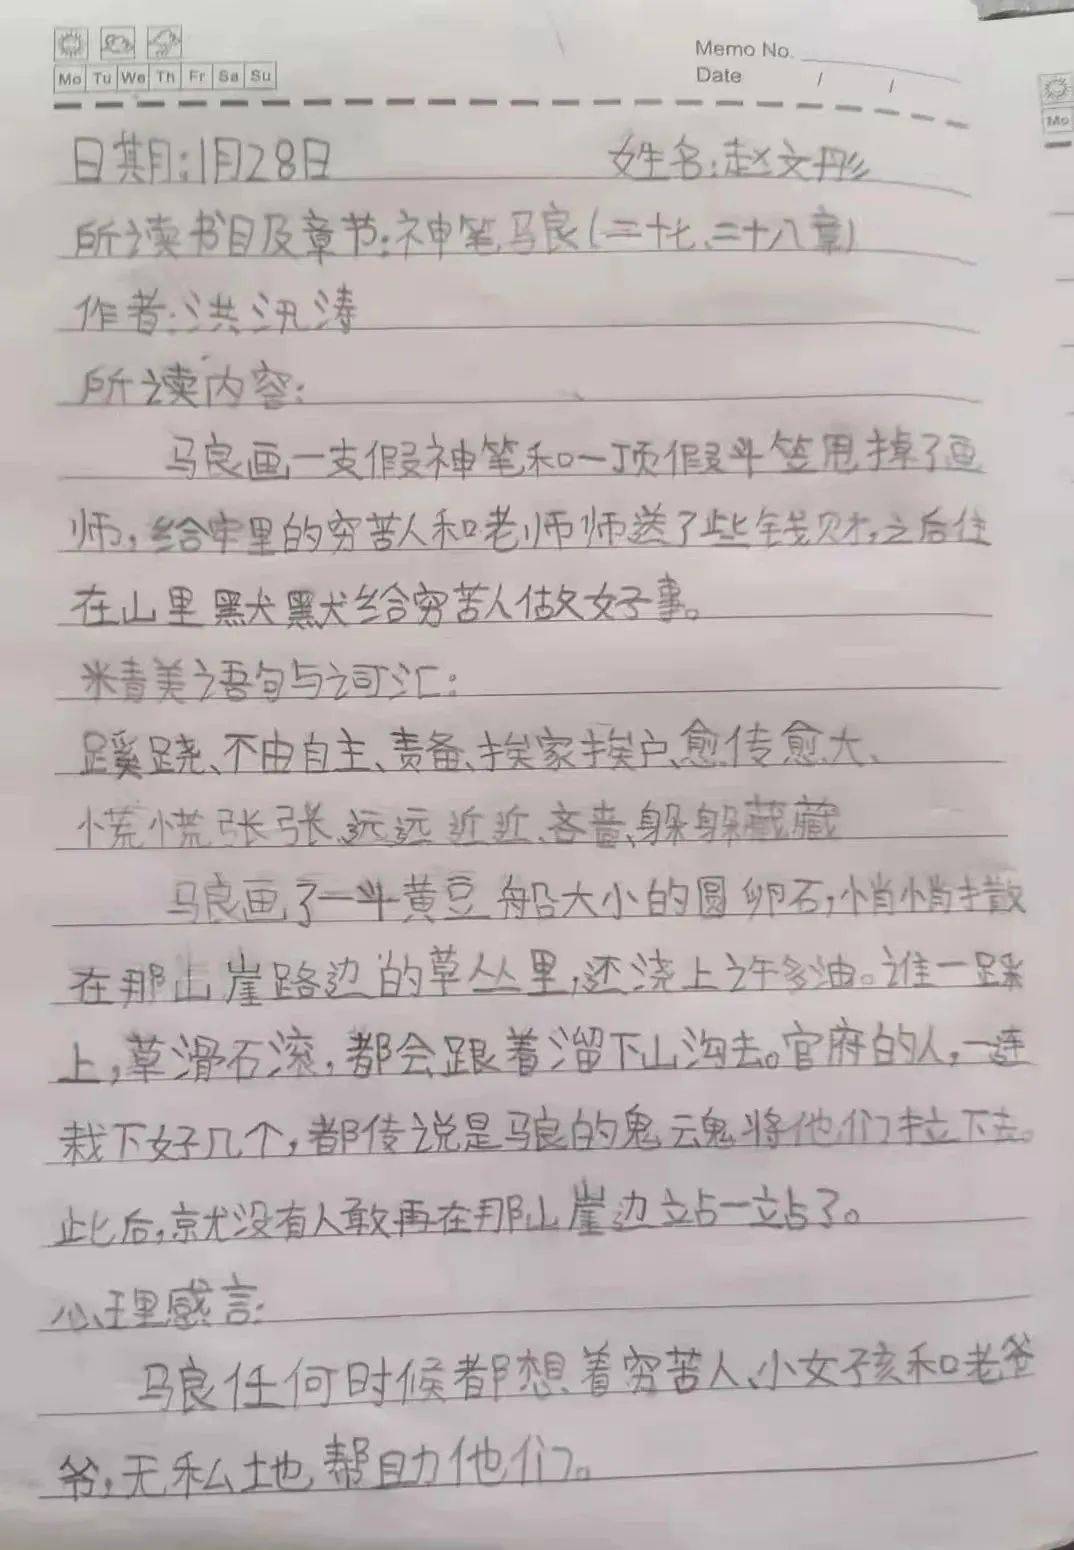 Memo No.
Mo Tu We Th Fr Sa Su
Date / /
Mo
日期:1月28日 姓名:赵文彤
所读书目及章节:神笔马良(二十七、二十八章)
作者:洪汛涛
所读内容:
马良画一支假神笔和一顶假斗笠甩掉了画
师,给牢里的穷苦人和老师师送了些钱财,之后住
在山里默默给穷苦人做好事。
精美语句与词汇:
蹊跷、不由自主、责备、挨家挨户、愈传愈大、
慌慌张张、远远近近、吝啬、躲躲藏藏
马良画了一斗黄豆般大小的圆卵石,悄悄撒
在那山崖路边的草丛里,还浇上许多油。谁一踩
上,草滑石滚,都会跟着溜下山沟去。官府的人,一连
栽下好几个,都传说是马良的鬼魂将他们拉下去。
此后,就没有人敢再在那山崖边站一站了。
心理感言:
马良任何时候都想着穷苦人、小女孩和老爷
爷,无私地帮助他们。